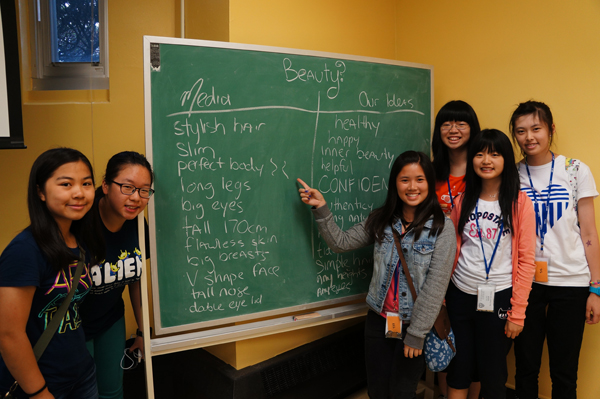 Beauty?
Media
stylish hair
slim
perfect body >:<
long legs
big eyes
tall 170cm
flawless skin
big breasts
V shape face
tall nose
double eye lid
Our Ideas
healthy
happy
inner beauty
helpful
CONFIDEN
simple
any height
AÉROPOSTALE